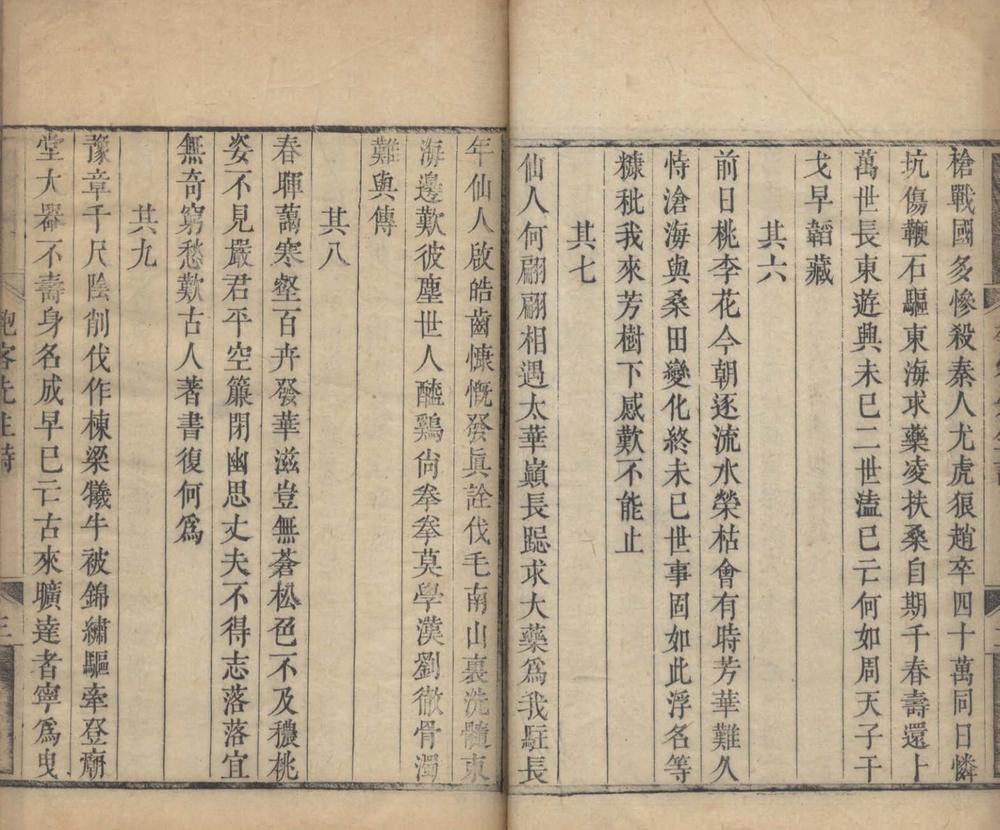 槍戰國多慘殺秦人尤虎狼趙卒四十萬同日憐
坑傷鞭石驅東海求藥凌扶桑自期千春壽還卜
萬世長東遊興未已二世溘已亡何如周天子干
戈早韜藏
其六
前日桃李花今朝逐流水榮枯會有時芳華難久
恃滄海與桑田變化終未已世事固如此浮名等
糠秕我來芳樹下感歎不能止
其七
仙人何翩翩相遇太華巔長跽求大藥爲我駐長
年仙人啟皓齒慷慨發眞詮伐毛南山裏洗髓東
海邊歎彼塵世人醯鷄尙拳拳莫學漢劉徹骨濁
難與傳
其八
春暉藹寒壑百卉發華滋豈無蒼松色不及穠桃
姿不見嚴君平空簾閉幽思丈夫不得志落落宜
無奇窮愁歎古人著書復何爲
其九
豫章千尺陰削伐作棟梁犧牛被錦繡驅牽登廟
堂大器不壽身名成早已亡古來曠達者寧爲曳
先生詩
三